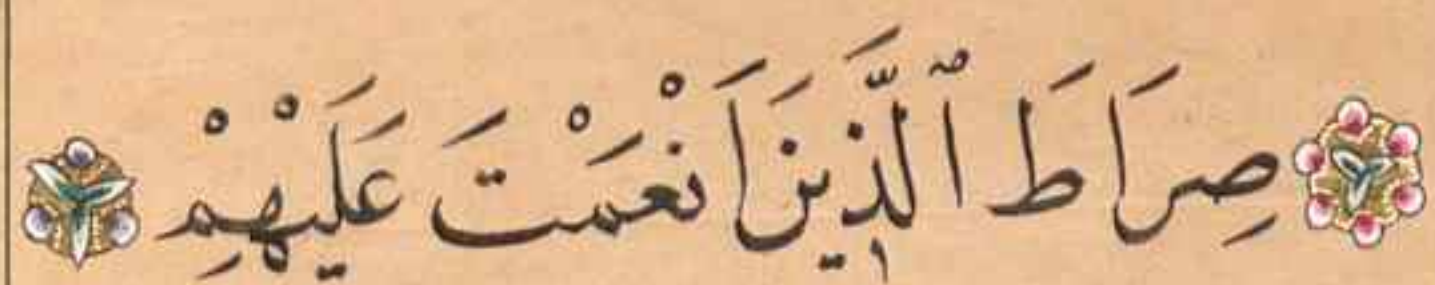 صِرَاطَ ٱلَّذِينَ اَنْعَمْتَ عَلَيْهِمْ